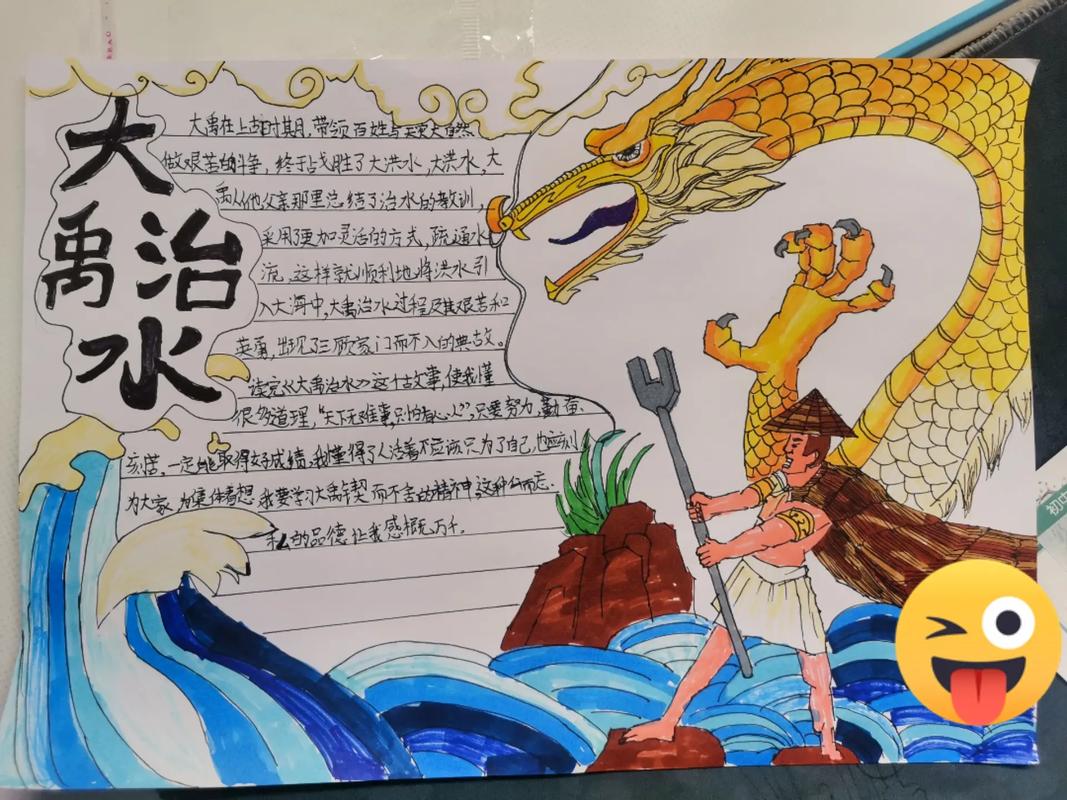 大禹治水
大禹在上古时期,带领百姓与天灾大自然
做艰苦的斗争,终于战胜了大洪水,大洪水,大
禹从他父亲那里总结了治水的教训,
采用了更加灵活的方式,疏通水
流,这样就顺利地将洪水引
入大海中,大禹治水过程及其艰苦和
英勇,出现了三顾家门而不入的典故。
读完《大禹治水》这个古文事,使我懂
很多道理,“天下无难事只怕有心人”,只要努力、勤奋、
刻苦,一定能取得好成绩,我懂得了人活着不应该只为了自己,也应该
为大家,为集体着想,我要学习大禹锲而不舍的精神,这种何而忘
私的品德让我感慨万千。
初中